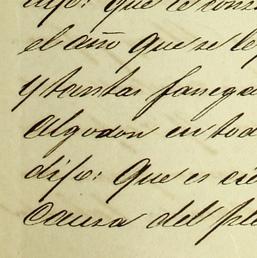 dijo: Que le cons
el año que se le
y tantas fanega
Algodon en tod
dijo: Que es cie
Causa del ple